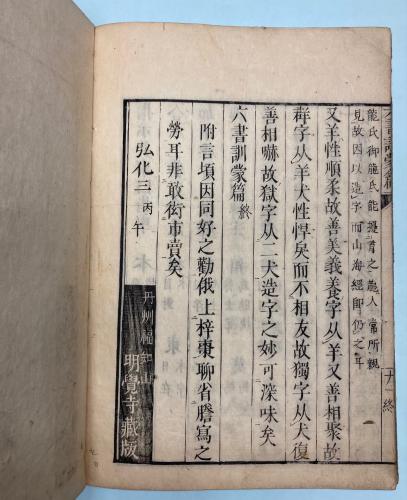 龍氏御龍氏能擾畜之龍人常所親
見故因以造字而山海經即仍之耳
又羊性順柔故善美義養字从羊又善相聚故
群字从羊犬性悍矣而不相友故獨字从犬復
善相嚇故獄字从二犬造字之妙可深味矣
六書訓蒙篇終
附言項因同好之勸俄上梓棗聊省謄寫之
勞耳非敢衒市賣矣
弘化三丙午
丹州福知山
明覺寺藏版
六書訓蒙篇
十一終